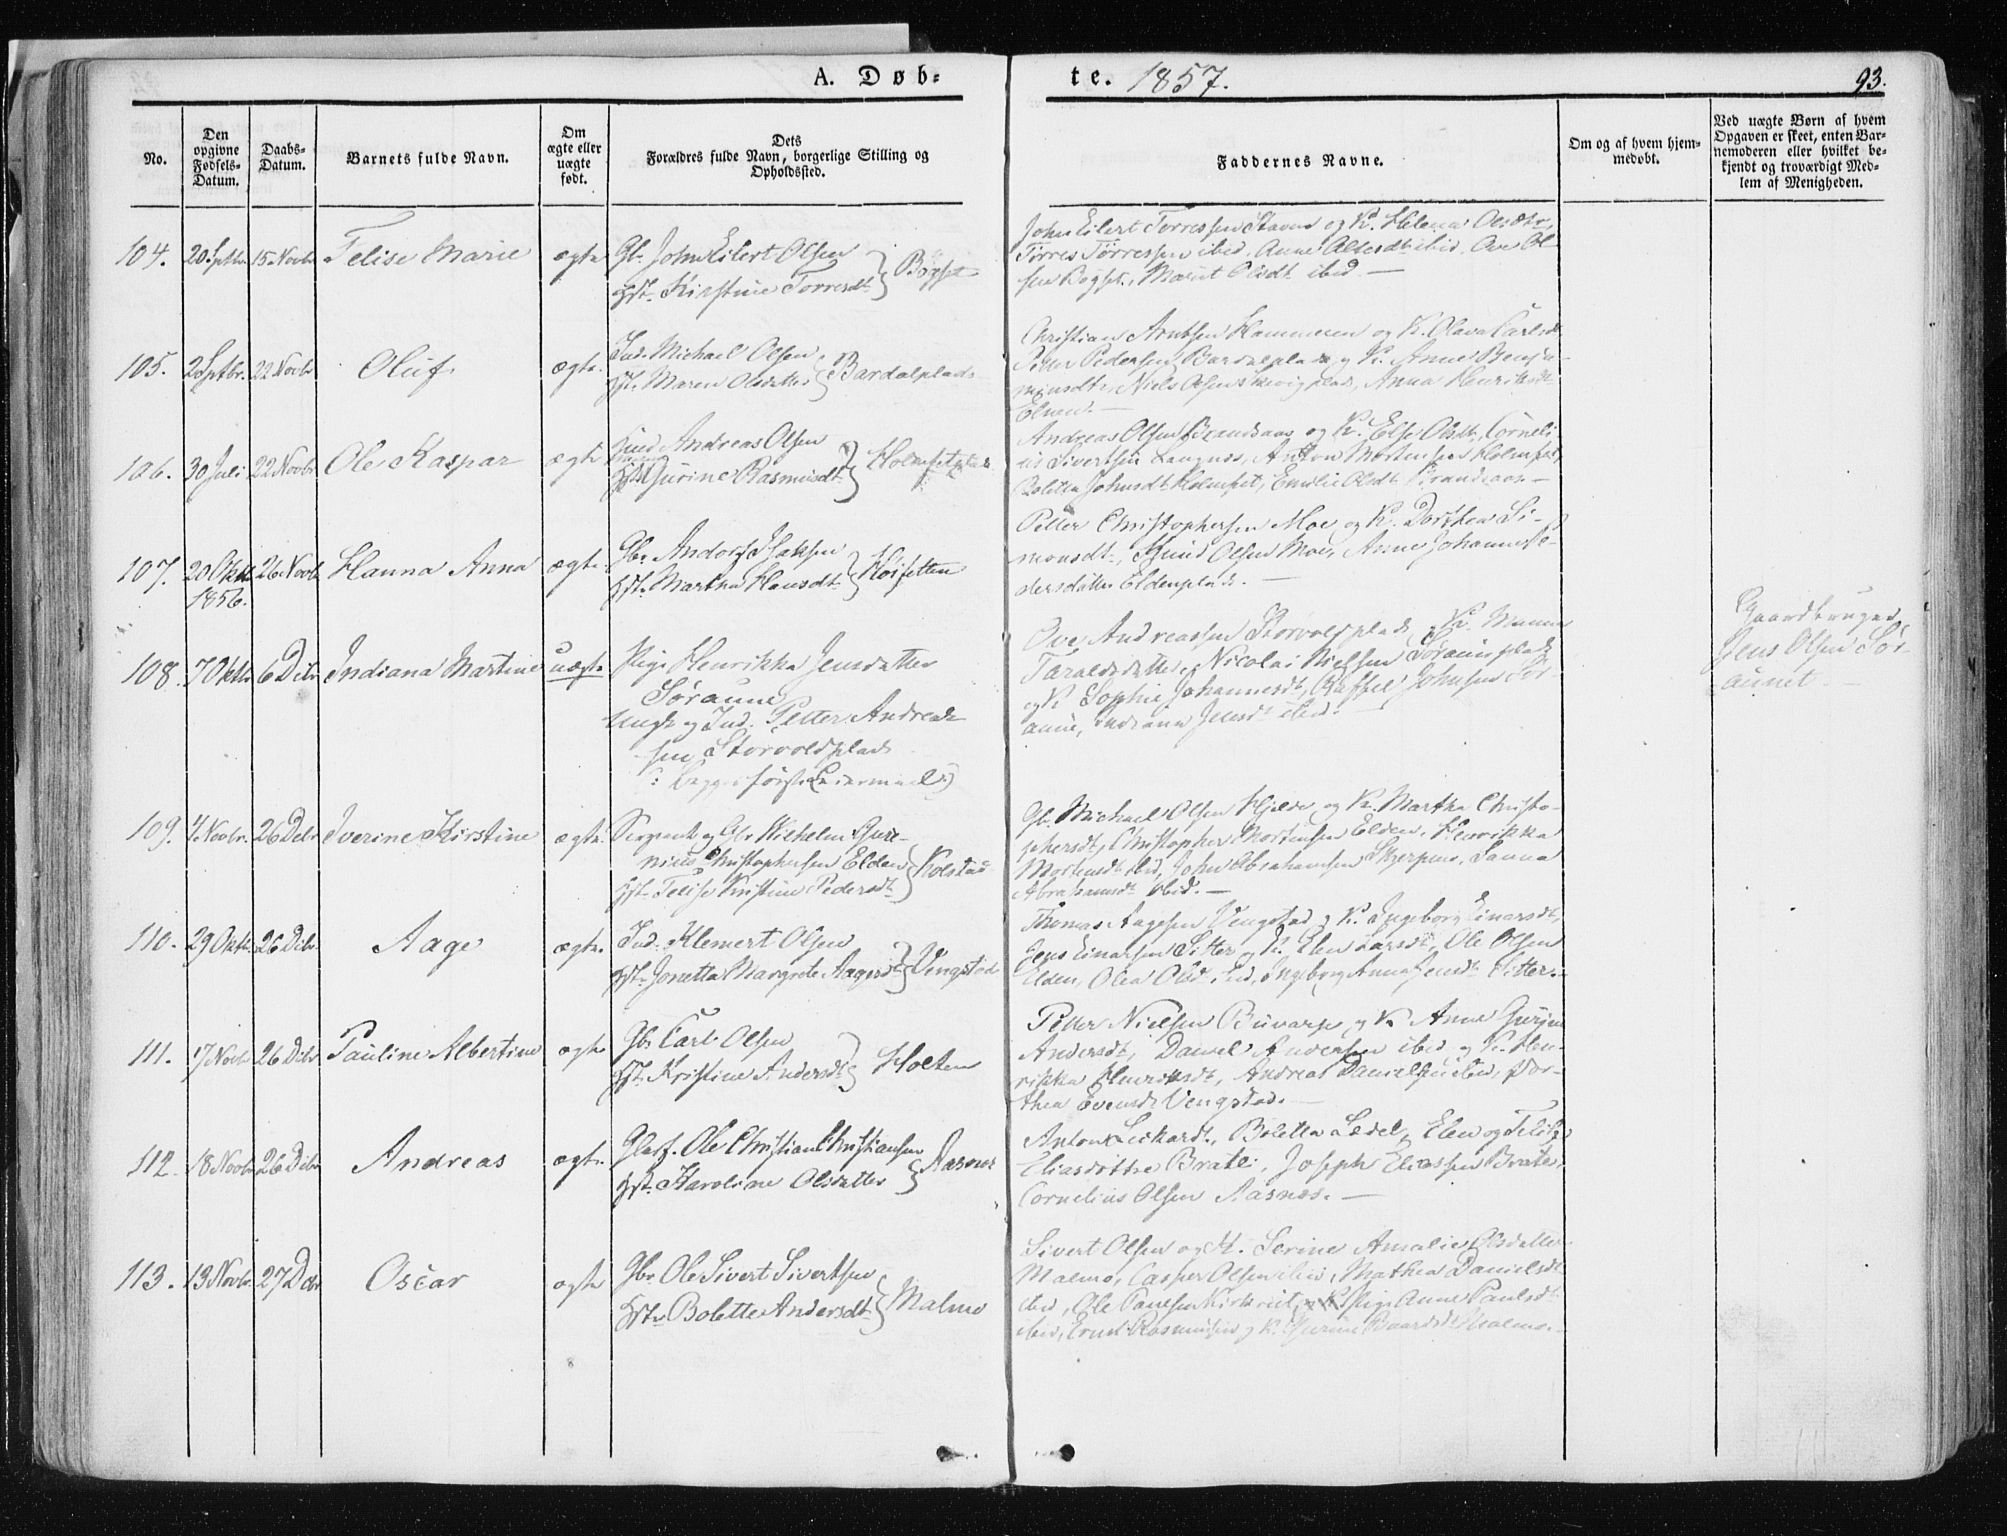 A. Døb=
te. 1857.
93.
No.
Den opgivne Fødsels-Datum.
Daabs-Datum.
Barnets fulde Navn.
Om ægte eller uægte født.
Dets Forældres fulde Navn, borgerlige Stilling og Opholdssted.
Faddernes Navne.
Om og af hvem hjemmedøbt.
Ved uægte Børn af hvem Opgaven er skeet, enten Barnemoderen eller hvilket bekjendt og troværdigt Medlem af Menigheden.
104. 20 Sptbr 15 Novbr Felise Marie ægte
Gb. John Eilert Olsen
Hst. Kirstine Torresdt.
John Eilert Torressen Stavnes og K. Helena Olsdtr,
Tørres Tørressen ibid, Anne Olsdt ibid, Ove Ol-
sen Bogset, Marit Olsdt ibid. —
105. 2 Sptbr. 22 Novbr Oluf ægte.
Ind. Michael Olsen
Hst. Maren Olsdatter } Bardalplads
Christian Arntsen Hammeren og K. Olava Carlsdt
Peter Pedersen Bardalplads og K. Anne Benja-
minsdt, Niels Olsen plads, Anna Henriksdt
106. 30 Juli 22 Novbr Ole Kaspar ægte
Ind. Andreas Olsen
Hst. Gurine Rasmusdt } Holmsetplads
Andreas Olsen Brandsaas og K. Else Olsdt, Corneli-
us Sivertsen Langnes, Anton Mortensen Holmset,
Boletta Johnsdt Holmset, Emilie Olsdt Brandsaas. —
107. 20 Oktb 1856. 26 Novbr Hanna Anna ægte.
Gbr. Andor Isaksen
Hst. Martha Hansdt
Petter Christophersen Moe og K. Dorthea Si-
monsdt, Olsen Moe, Anne Johanne Pe-
dersdatter Eldenplads. —
108. 7 Oktb 6 Dcbr Indiana Martine uægte
Pige Henrikka Jensdatter
Søraunet
Ungk og Ind. Petter Andreas-
sen Storvoldplads
(: begges første Leiermaal :)
Ove Andreassen Storvoldplads, K.
Taraldsdatter, Nicolai Nielsen Søraunplads
og K Sophie Johannesdt, Johnsen Sør-
aune, Indiana Jensdt ibid.
Gaardbruger
Jens Olsen Sør-
aunet —
109. 4 Novbr. 26 Dcbr Iverine Kirstine ægte.
Sergeant og Gbr Wilhelm
Christophersen Elden
Hst. Felise Kristine Pedersdt } Kolstad
Gb. Michael Olsen Hjelde og K. Martha Christo-
phersdt, Christopher Mortensen Elden, Henrikka
Mortensdt ibid, John Abrahamsen Skjerpnes, Sanna
Abrahamsdt ibid. —
110. 29 Oktb. 26 Dcbr Aage ægte.
Ind. Klemert Olsen
Hst. Jonetta Margrete Aagesdt } Vengstad
Thomas Aagesen Vengstad og K. Ingeborg Einarsdt,
Jens Einarsen Sitter og K. Elen Larsdt, Ole Olsen
Elden, Olea Olsdt ibid, Ingeborg Anna Jensdt Sitter. —
111. 17 Novbr 26 Dcbr Pauline Albertine ægte
Gb. Carl Olsen
Hst. Kristine Andersdt } Holten
Petter Nielsen Buvarp og K. Anne Gurine
Andersdt, Daniel Andersen ibid og K. Hen-
rikka Henriksdt, Andreas Danielsen ibid, Dor-
thea Evensdt Vengstad. —
112. 18 Novbr 26 Dcbr Andreas ægte.
Ole Christian Christiansen
Hst. Karoline Olsdatter } Aasnes
Anton Leikardt., Boletta Ledel, Elen og Felise
Eliasdøttre Bratli, Joseph Eliassen Bratli,
Cornelius Olsen Aasnes. —
113. 13 Novbr. 27 Dcbr Oscar ægte
Gbr. Ole Sivert Sivertsen
Hst. Bolette Andersdt } Malmo
Sivert Olsen og K. Serine Amalie Olsdatter
Malmo, Casper Olsen ibid, Mathea Danielsdt
ibid, Ole Paulsen Pige Anne Paulsdt
ibid, Rasmussen og K. Gurine Baardsdt Malmo.